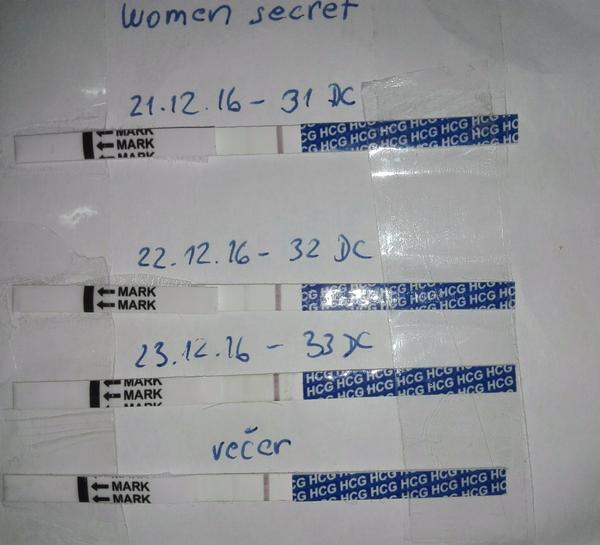 women secret
21.12.16 - 31 DC
MARK
MARK
MARK
CG HCG HCG HCG HCG HCG HCG
CG HCG HCG HCG HCG HCG HC
22.12.16 - 32 DC
MARK
MARK
23.12.16 - 33 DC
MARK
MARK
MARK
HCG HCG HCG HCG HCG HCG
HCG HCG HCG HCG HCG HCG
večer
MARK
MARK
CG HCG HCG HCG HCG HCG HCG
HCG HCG HCG HCG HCG HCG